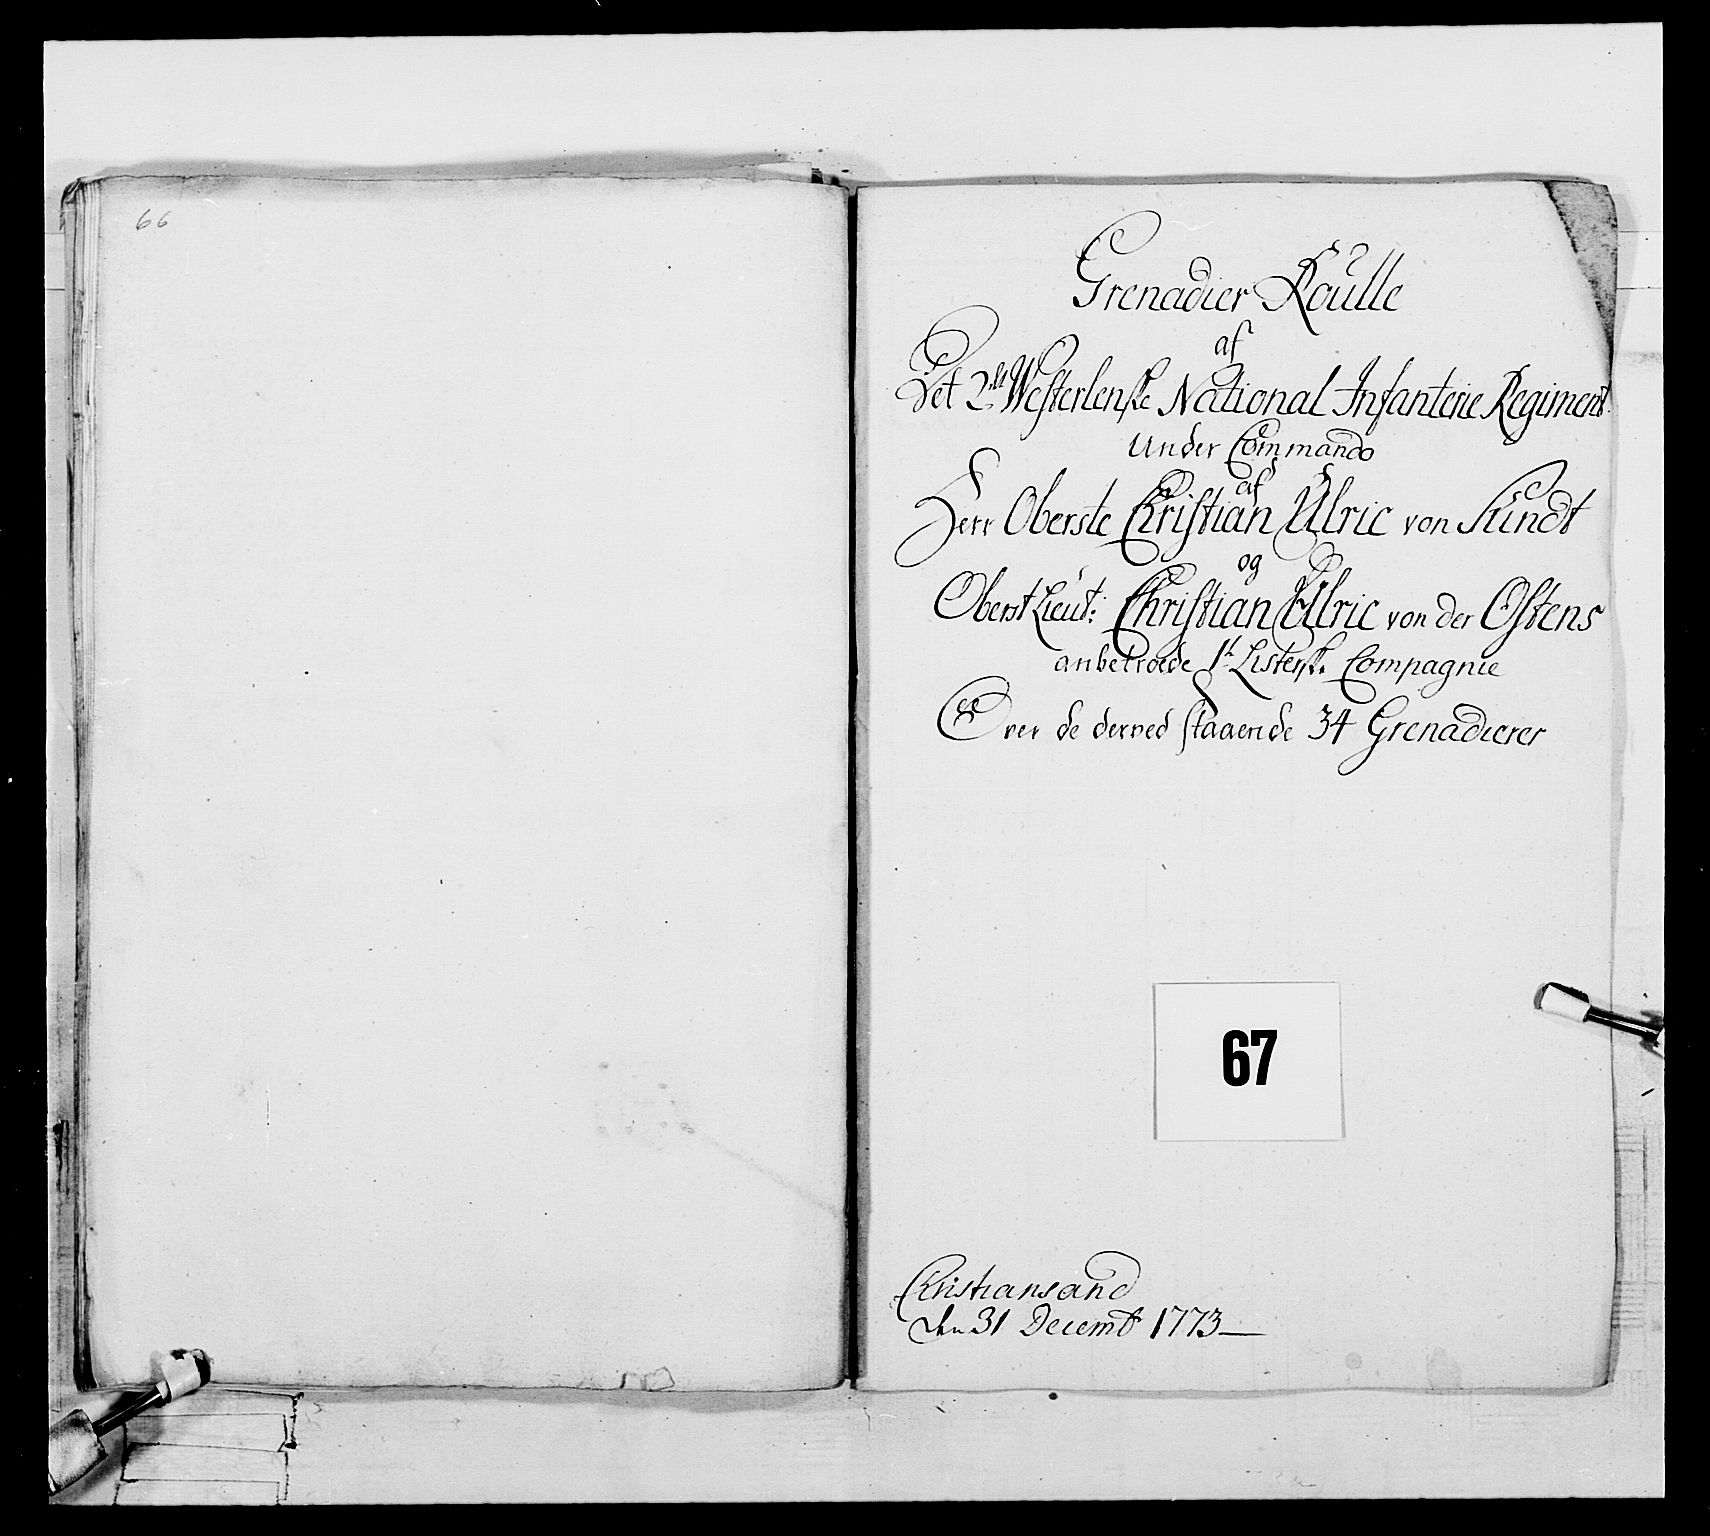 66
Grenadier Roulle
af
Det 2det Westerlenske National Infanterie Regiment
Under Commando
af
Herr Oberste Christian Ulric von Sundt
og
Oberst Lieut: Christian Ulric von der Ostens
anbetroede 1te Listerske Compagnie
Over de derved staaende 34 Grenadierer
67
Christiansand
den 31 Decemb 1773